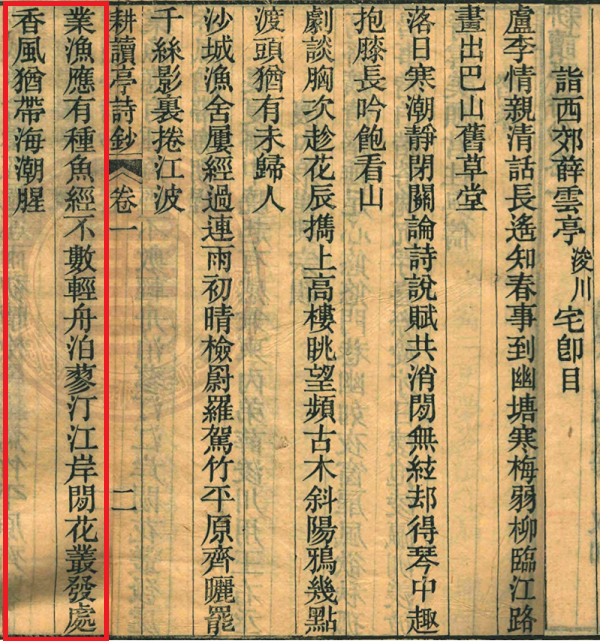 詣西郊薛雲亭浚川宅卽目
盧李情親清話長遙知春事到幽塘寒梅弱柳臨江路
畫出巴山舊草堂
落日寒潮靜閉關論詩說賦共消閒無絃却得琴中趣
抱膝長吟飽看山
劇談胸次趁花辰攜上高樓眺望頻古木斜陽鴉幾點
渡頭猶有未歸人
沙城漁舍屢經過連雨初晴檢罻羅駕竹平原齊曬罷
千絲影裏捲江波
耕讀亭詩鈔 卷一 二
業漁應有種魚經不數輕舟泊蓼汀江岸閒花叢發處
香風猶帶海潮腥